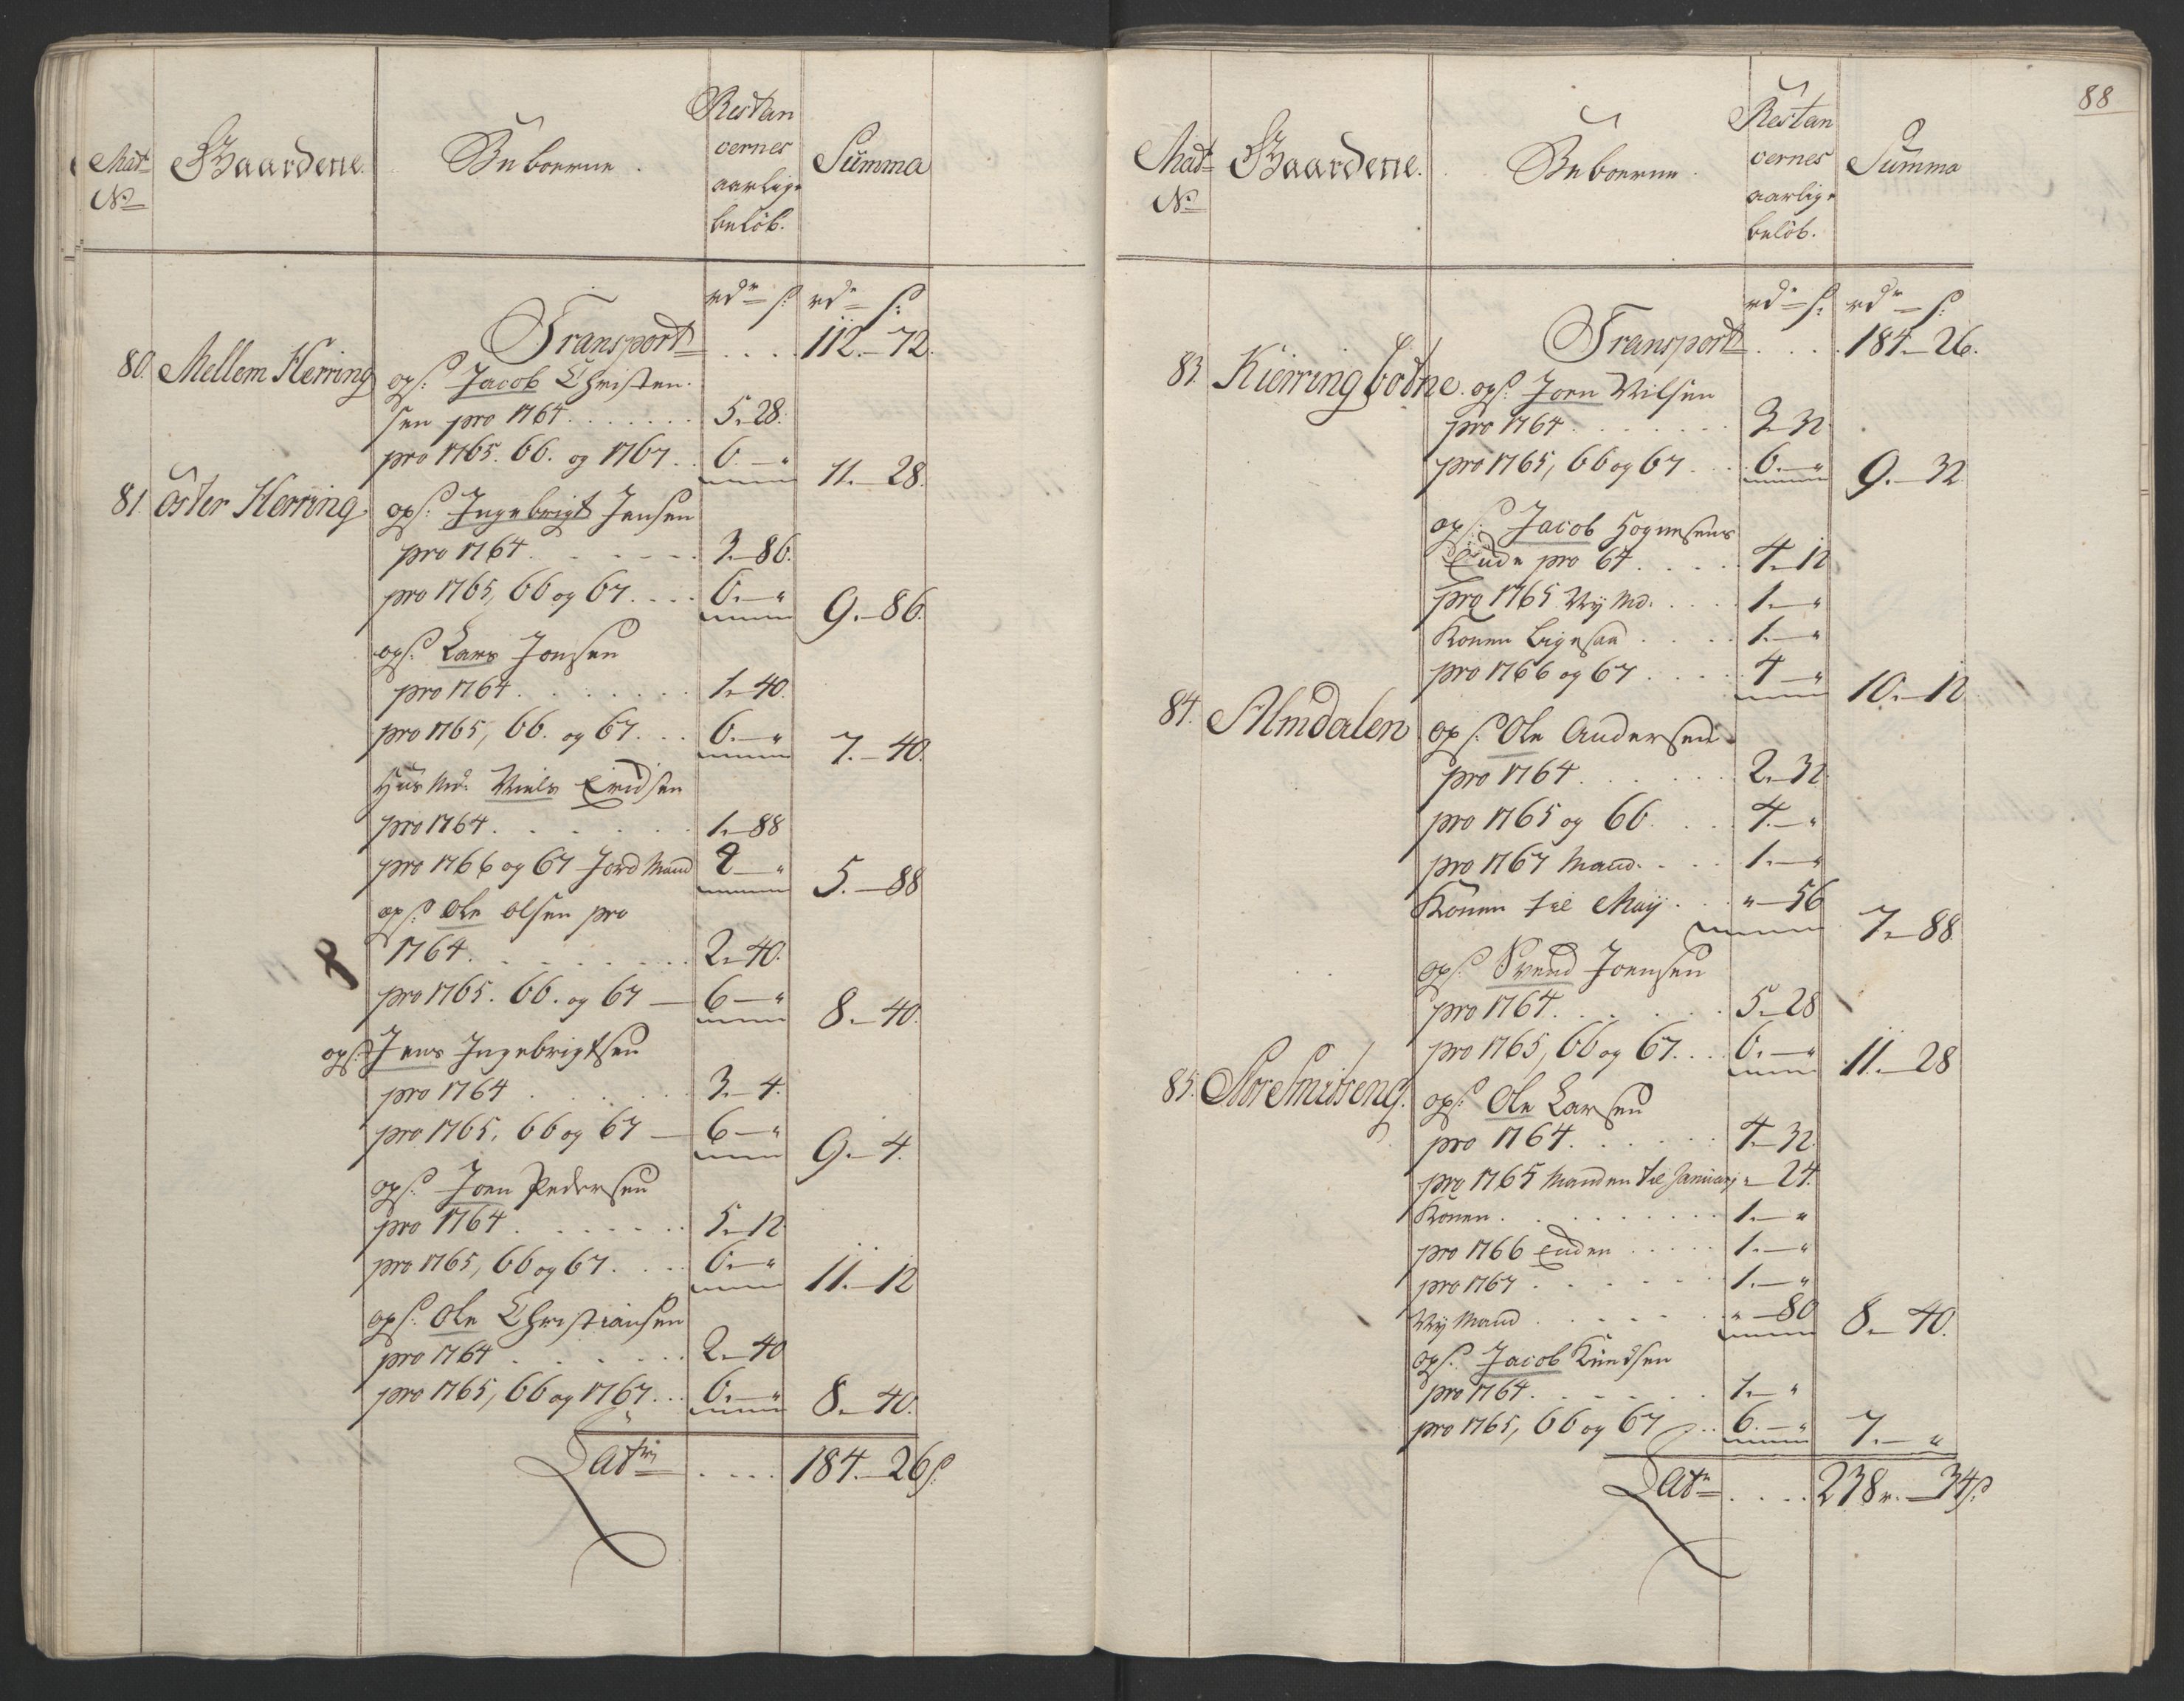 Mat
No
Gaardene.
Beboerne.
Restan
cernes
aarlige
beløb.
Summa
rdr ß: rdr ß:
Transport .... 112.-72.
80. Mellem Herring ops: Jacob Christen-
sen pro 1764....... 5.-28.
pro 1765. 66. og 1767.. 6.-" 11.-28.
81. öster Herring. ops: Ingebrigt Jensen
pro 1764....... 3.-86.
pro 1765, 66 og 67.... 6.-" 9.-86.
ops: Lars Jonsen
pro 1764....... 1.-40.
pro 1765, 66. og 67... 6.-" 7.-40.
Huus Md: Niels Eridsen
pro 1764....... 1.-88
pro 1766 og 67 Jord Mand 4-" 5.-88
ops: Ole Olsen pro
1764........ 2.-40.
pro 1765. 66. og 67 — 6-" 8.-40.
ops: Jens Ingebrigtsen
pro 1764 ..... 3.-4.
pro 1765, 66 og 67 — 6-" 9.-4.
ops: Joen Pedersen
pro 1764....... 5.-12
pro 1765, 66 og 67.... 6.-" 11.-12
ops: Ole Christiansen
pro 1764...... 2.-40
pro 1765, 66 og 1767... 6.-" 8.-40.
Latri .... 184.-26ß:
88
Mat
No
Gaardene.
Beboerne.
Restan
cernes
aarlige
beløb.
Summa
rdr ß: rdr ß:
Transport.... 184.-26.
83. Kierringbotne. ops: Joen Nilsen
pro 1764....... 3.-32
pro 1765, 66 og 67.... 6.-" 9.-32.
ops: Jacob Hognesens
Enke pro 64.... 4.-12
pro 1765 Ny Md..... 1.-"
Konen ligesaa .... 1.-"
pro 1766 og 67..... 4-" 10.-12
84. Almdalen ops: Ole Andersen
pro 1764...... 2.-32
pro 1765 og 66.... 4.-"
pro 1767 Mand.... 1.-"
Konen til Maij... "-56 7.-88.
ops: Svend Joensen
pro 1764...... 5.-28
pro 1765, 66 og 67... 6.-" 11.-28
85. Store Smitseng. ops: Ole Larsen
pro 1764...... 4.-32.
pro 1765 Manden til Januarij "-24.
Konen........ 1.-"
pro 1766 Enken ..... 1.-"
pro 1767 ...... 1.-"
Ny Mand ...... "-80 8.-40.
ops: Jacob Knudsen
pro 1764...... 1.-"
pro 1765, 66 og 67 .. 6.-" 7.-"
Latr .... 238r.-34ß: